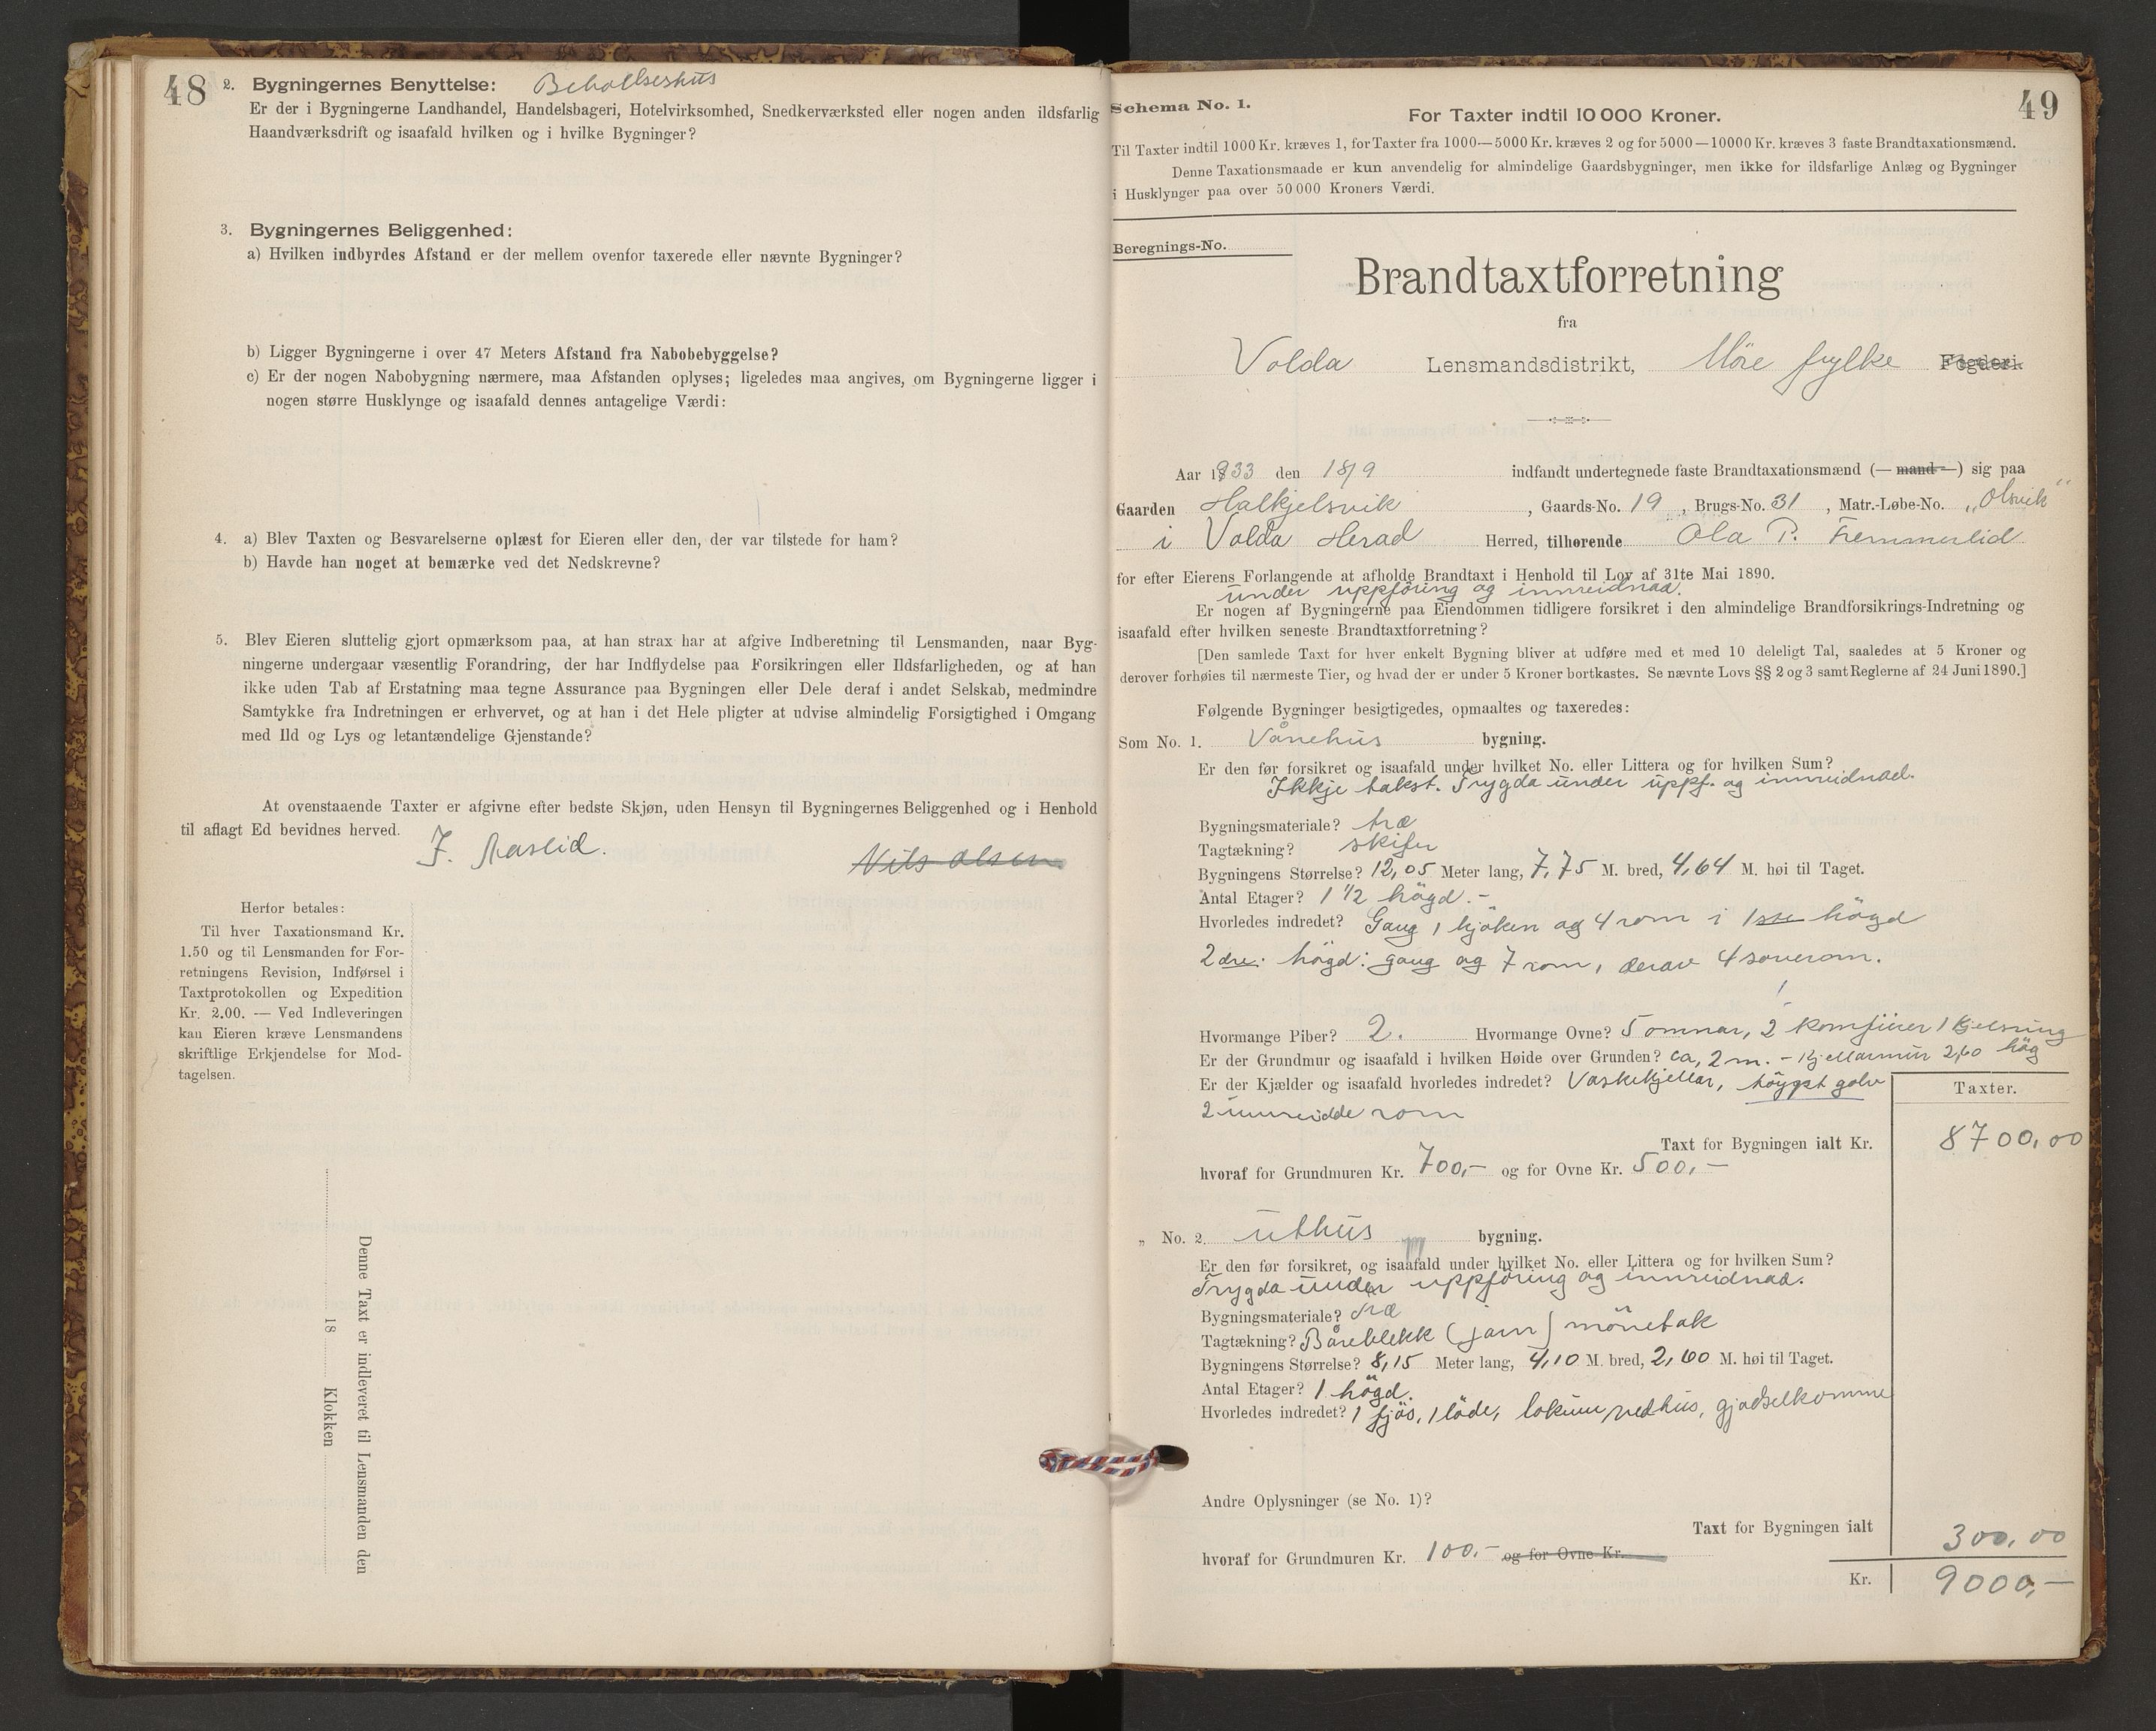 48
2. Bygningernes Benyttelse: Beholdseshus
Er der i Bygningerne Landhandel, Handelsbageri, Hotelvirksomhed, Snedkerværksted eller nogen anden ildsfarlig
Haandværksdrift og isaafald hvilken og i hvilke Bygninger?
3. Bygningernes Beliggenhed:
a) Hvilken indbyrdes Afstand er der mellem ovenfor taxerede eller nævnte Bygninger?
b) Ligger Bygningerne i over 47 Meters Afstand fra Nabobebyggelse?
c) Er der nogen Nabobygning nærmere, maa Afstanden oplyses; ligeledes maa angives, om Bygningerne ligger i
nogen større Husklynge og isaafald dennes antagelige Værdi:
4. a) Blev Taxten og Besvarelserne oplæst for Eieren eller den, der var tilstede for ham?
b) Havde han noget at bemærke ved det Nedskrevne?
5. Blev Eieren sluttelig gjort opmærksom paa, at han strax har at afgive Indberetning til Lensmanden, naar Byg-
ningerne undergaar væsentlig Forandring, der har Indflydelse paa Forsikringen eller Ildsfarligheden, og at han
ikke uden Tab af Erstatning maa tegne Assurance paa Bygningen eller Dele deraf i andet Selskab, medmindre
Samtykke fra Indretningen er erhvervet, og at han i det Hele pligter at udvise almindelig Forsigtighed i Omgang
med Ild og Lys og letantændelige Gjenstande?
At ovenstaaende Taxter er afgivne efter bedste Skjøn, uden Hensyn til Bygningernes Beliggenhed og i Henhold
til aflagt Ed bevidnes herved.
J. Aaslid. Nils Olsen
Herfor betales:
Til hver Taxationsmand Kr.
1.50 og til Lensmanden for For-
retningens Revision, Indførsel i
Taxtprotokollen og Expedition
Kr. 2.00. — Ved Indleveringen
kan Eieren kræve Lensmandens
skriftlige Erkjendelse for Mod-
tagelsen.
Denne Taxt er indleveret til Lensmanden den
18 Klokken
49
Schema No. 1.
For Taxter indtil 10 000 Kroner.
Til Taxter indtil 1000 Kr. kræves 1, for Taxter fra 1000—5000 Kr. kræves 2 og for 5000—10000 Kr. kræves 3 faste Brandtaxationsmænd.
Denne Taxationsmaade er kun anvendelig for almindelige Gaardsbygninger, men ikke for ildsfarlige Anlæg og Bygninger
i Husklynger paa over 50 000 Kroners Værdi.
Beregnings-No.
Brandtaxtforretning
fra
Volda Lensmandsdistrikt, Möre fylke Fogderi.
Aar 1933 den 18/9 indfandt undertegnede faste Brandtaxationsmænd (— mand —) sig paa
Gaarden Halkjelsvik, Gaards-No. 19, Brugs-No. 31, Matr.-Løbe-No. „Olsvik“
i Volda Herad Herred, tilhørende Ola P. Fremmerlid
for efter Eierens Forlangende at afholde Brandtaxt i Henhold til Lov af 31te Mai 1890.
under uppföring og innreidnad.
Er nogen af Bygningerne paa Eiendommen tidligere forsikret i den almindelige Brandforsikrings-Indretning og
isaafald efter hvilken seneste Brandtaxtforretning?
[Den samlede Taxt for hver enkelt Bygning bliver at udføre med et med 10 deleligt Tal, saaledes at 5 Kroner og
derover forhøies til nærmeste Tier, og hvad der er under 5 Kroner bortkastes. Se nævnte Lovs §§ 2 og 3 samt Reglerne af 24 Juni 1890.]
Følgende Bygninger besigtigedes, opmaaltes og taxeredes:
Som No. 1. Vånehus bygning.
Er den før forsikret og isaafald under hvilket No. eller Littera og for hvilken Sum?
Ikkje takst. Trygda under uppf. og innreidnad.
Bygningsmateriale? træ
Tagtækning? skifer
Bygningens Størrelse? 12,05 Meter lang, 7,75 M. bred, 4,64 M. høi til Taget.
Antal Etager? 1 ½ högd. -
Hvorledes indredet? Gang, kjöken og 4 rom i 1ste högd
2dre. högd: gang og 7 rom, derav 4 soverom.
Hvormange Piber? 2. Hvormange Ovne? 5 omnar, 2 komfürer 1
Er der Grundmur og isaafald i hvilken Høide over Grunden? ca, 2 m. - Kjellarmur 2,60 hög
Er der Kjælder og isaafald hvorledes indredet? Vaskekjellar, stöypt golv
2 innreidde rom
Taxter.
Taxt for Bygningen ialt Kr. 8700,00
hvoraf for Grundmuren Kr. 700,- og for Ovne Kr. 500,-
„ No. 2. Uthus bygning.
Er den før forsikret, og isaafald under hvilket No. eller Littera og for hvilken Sum?
Trygda under uppföring og innreidnad.
Bygningsmateriale? træ
Tagtækning? Båreblekk (jarn) mönetak
Bygningens Størrelse? 8,15 Meter lang, 4,10 M. bred, 2,60 M. høi til Taget.
Antal Etager? 1 högd.
Hvorledes indredet? 1 fjös, 1 löde, lokum, vedhus, gjødselkomme
Andre Oplysninger (se No. 1)?
Taxt for Bygningen ialt 300,00
hvoraf for Grundmuren Kr. 100,- og for Ovne Kr.
Kr. 9000,—